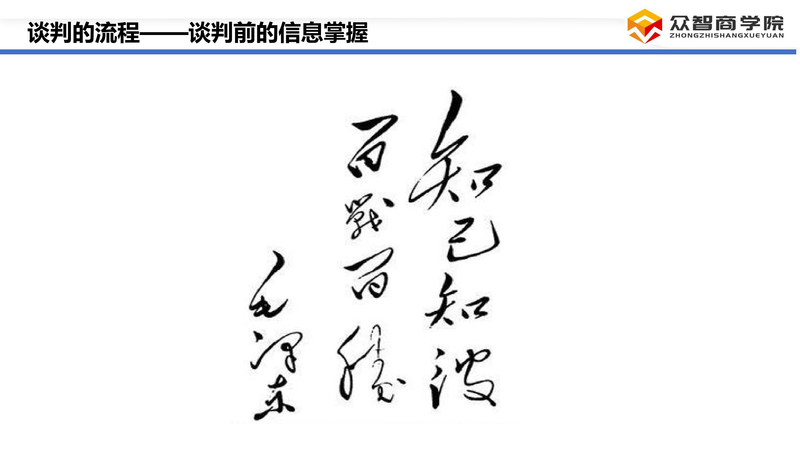 谈判的流程——谈判前的信息掌握
众智商学院
ZHONGZHISHANGXUEYUAN
知己知彼
百戰百勝
毛泽东